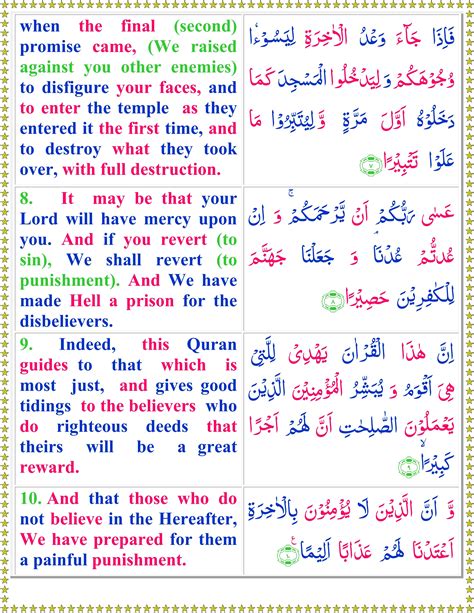 when the final (second)
promise came, (We raised
against you other enemies)
to disfigure your faces, and
to enter the temple as they
entered it the first time, and
to destroy what they took
over, with full destruction.
فَاِذَا جَآءَ وَعْدُ الْاٰخِرَةِ لِيَسُوْٓءٗا
وُجُوْهَكُمْ وَ لِيَدْخُلُوا الْمَسْجِدَ كَمَا
دَخَلُوْهُ اَوَّلَ مَرَّةٍ وَّ لِيُتَبِّرُوْا مَا
عَلَوْا تَتْبِيْرًا ﴿٧﴾
8. It may be that your
Lord will have mercy upon
you. And if you revert (to
sin), We shall revert (to
punishment). And We have
made Hell a prison for the
disbelievers.
عَسٰى رَبُّكُمْ اَنْ يَّرْحَمَكُمْ ۚ وَ اِنْ
عُدْتُّمْ عُدْنَا ۘ وَ جَعَلْنَا جَهَنَّمَ
لِلْكٰفِرِيْنَ حَصِيْرًا ﴿٨﴾
9. Indeed, this Quran
guides to that which is
most just, and gives good
tidings to the believers who
do righteous deeds that
theirs will be a great
reward.
اِنَّ هٰذَا الْقُرْاٰنَ يَهْدِيْ لِلَّتِيْ
هِيَ اَقْوَمُ وَ يُبَشِّرُ الْمُؤْمِنِيْنَ الَّذِيْنَ
يَعْمَلُوْنَ الصّٰلِحٰتِ اَنَّ لَهُمْ اَجْرًا
كَبِيْرًا ۙ﴿٩﴾
10. And that those who do
not believe in the Hereafter,
We have prepared for them
a painful punishment.
وَّ اَنَّ الَّذِيْنَ لَا يُؤْمِنُوْنَ بِالْاٰخِرَةِ
اَعْتَدْنَا لَهُمْ عَذَابًا اَلِيْمًا ﴿١٠﴾